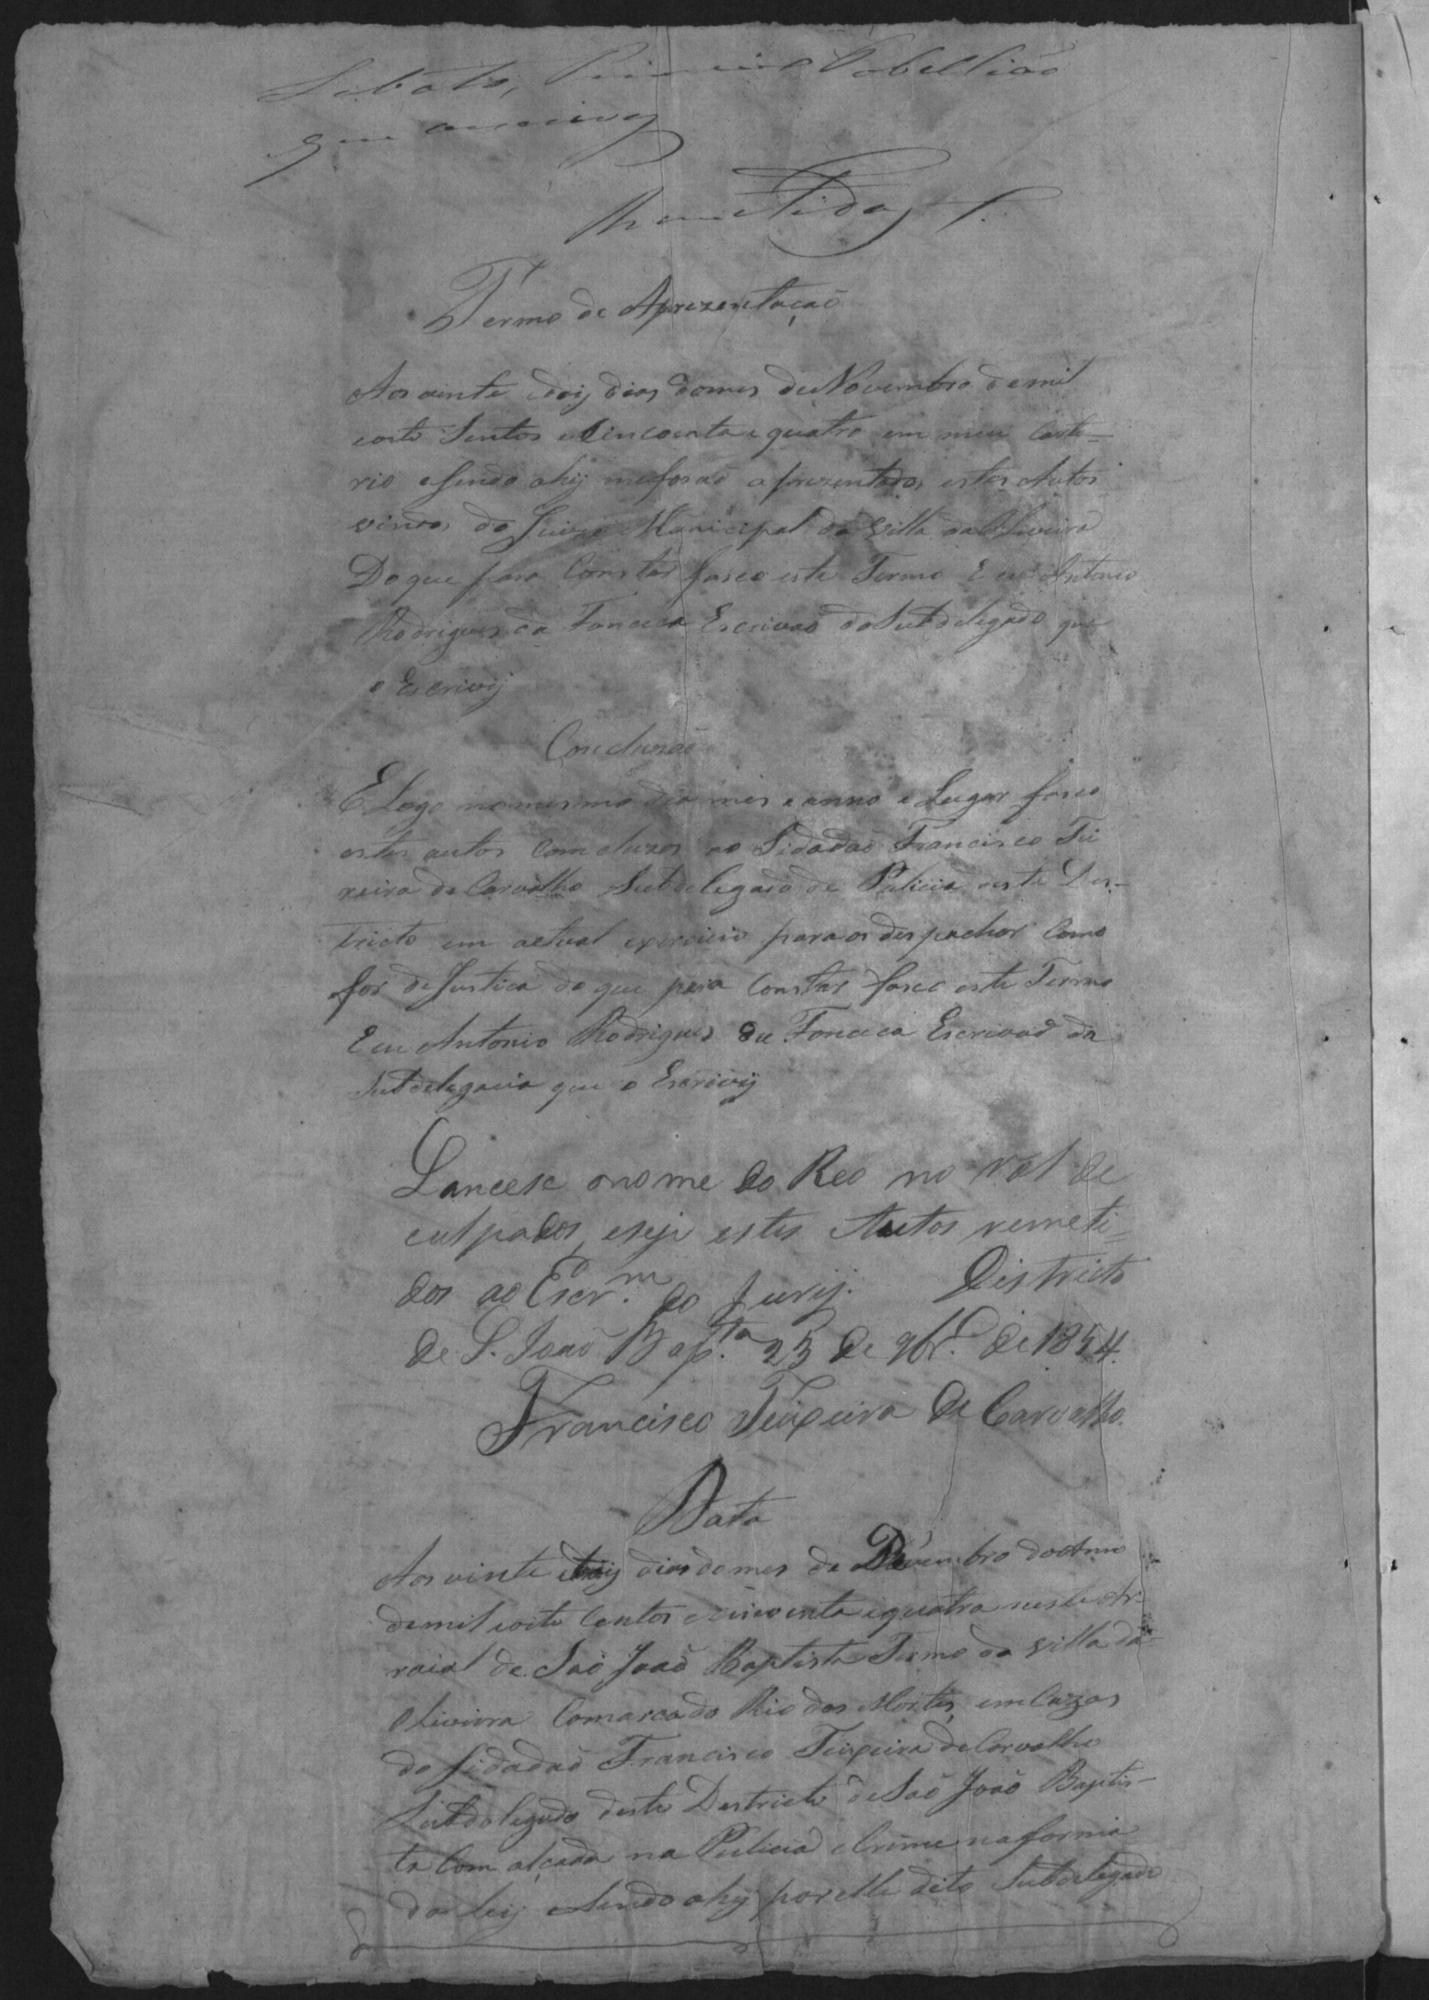 Lobato, Primeiro Tabellião
que escrevy
Remetidos
Termo de Aprezentação
Aos vinte e dois dias do mes de Novembro de mil
e oito Sentos e Sincoenta e quatro em meu Carto-
rio e sendo ahy me forão aprezentados estes Autos
vindos do Juizo Municipal da Villa da Oliveira
Do que para Constar fasco este Termo E eu Antonio
Rodrigues da Fonceca Escrivão do Subdelegado que
o Escrivij
Concluzão
E Logo no mesmo dia mes e anno e Lugar fasco
estes autos Concluzos ao Sidadão Francisco Tei
xeira de Carvalho Subdelegado de Policia deste Des-
tricto em actual exercicio para os despachar Como
for de Justica do que para Constar fasco este Termo
E eu Antonio Rodrigues da Fonceca Escrivão da
Subdelegacia que o Escrivij
Lancese o nome do Reo no rol de
culpados, e seje estes Autos remeti-
dos ao Escr.m do Jurij. Districto
de S. João Bap.ta 23 de 9br.o de 1854.
Francisco Teixeira de Carvalho.
Data
Aos vinte e treis dias do mes de Novembro do Anno
de mil e oito Centos e cincoenta e quatro neste Ar-
raial de São João Baptista Termo da Villa da
Oliveira Comarca do Rio das Mortes, em Cazas
do Sidadão Francisco Teixeira de Carvalho
Subdelegado deste Destricto de São João Baptis-
ta Com alçada na Policia e Crime na forma
da ley e Sendo ahy por elle dito Subdelegado